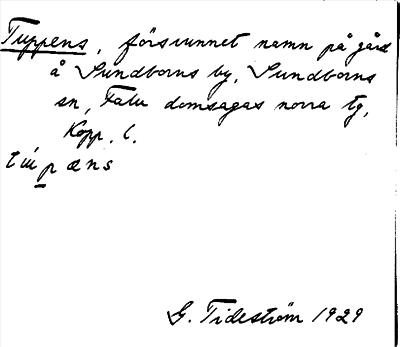 Tuppens, försvunnet namn på gård
å Sundborns by, Sundborns
sn, Falu domsagas norra tg,
Kopp. l.
G. Tideström 1929